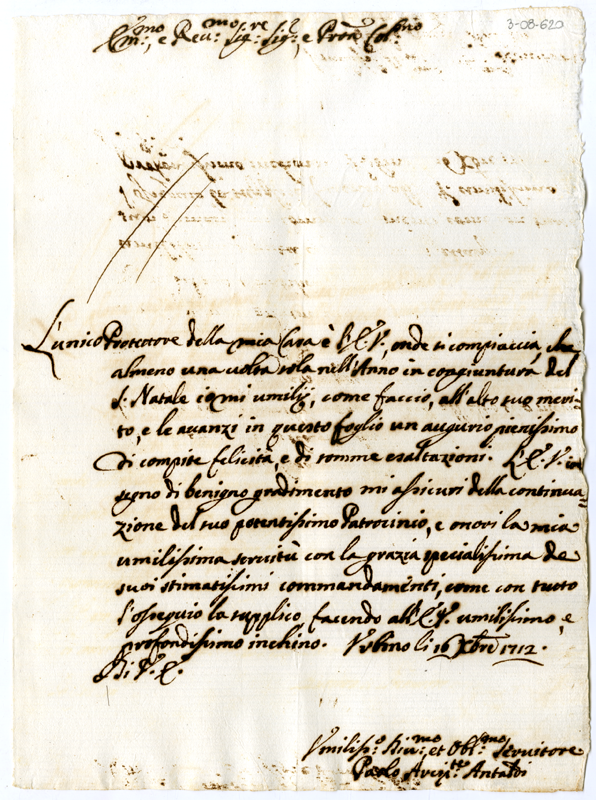 3-08-620
Em:mo, e Rev:mo Sig:re Sig:r, e Pron Col:mo
L'unico Protettore della mia Casa è l'E.V., onde si compiaccia, che
almeno una volta sola nell'Anno in congiuntura del
S. Natale io mi umilij, come faccio, all'alto suo meri-
to, e le avanzi in questo foglio un augurio pienissimo
di compite felicità, e di somme esaltazioni. L'E.V. in
segno di benigno gradimento mi assicuri della continua-
zione del suo potentissimo Patrocinio, e onori la mia
umilissima servitù con la grazia specialissima de
suoi stimatissimi commandamenti, come con tutto
l'ossequio la supplico, facendo all'E.V. umilissimo, e
profondissimo inchino. Urbino li 16 Xbre 1712.
Di V.E.
Umiliss:o Div:mo et Obl:mo Servitore
Paolo Antaldi